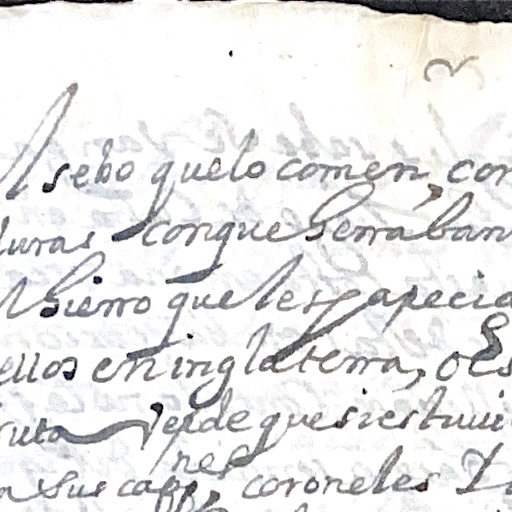 sebo que lo comen, con
duras con que herraban
hierro que les parecia
ellos en inglaterra, o Es
fruta verde que si estuui
n sus cappnes, coroneles